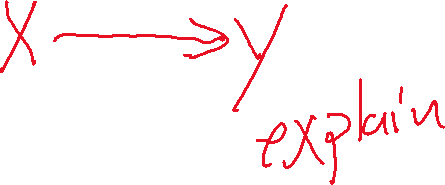 X → Y
explain